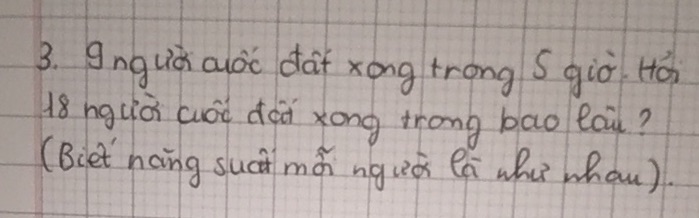 3. 9 người cuốc đất xong trong 5 giờ. Hỏi
18 người cuốc đất xong trong bao lâu?
(Biết năng suất mỗi người là như nhau).